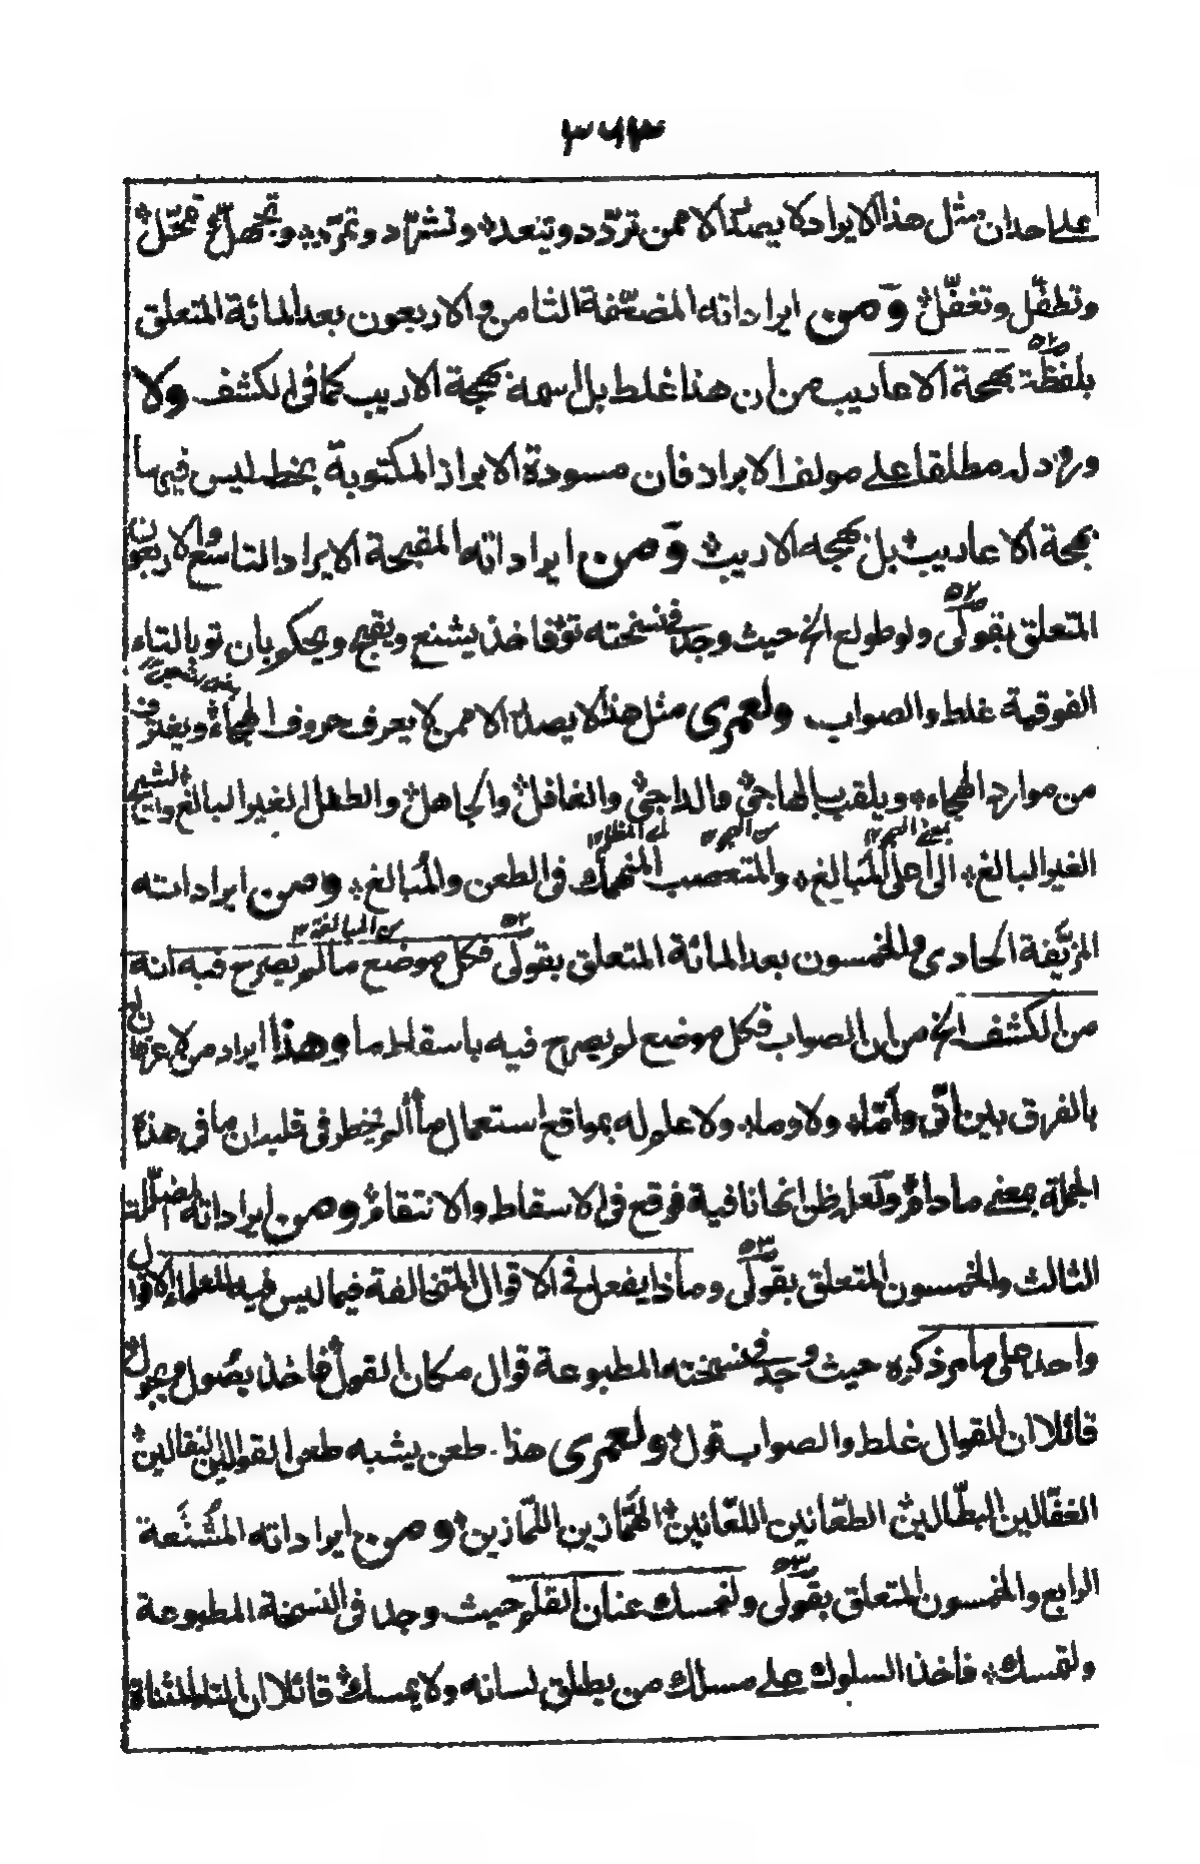 ٣٦٣
على احد ان مثل هذا الايراد لا يصدر الا ممن تردّد وتنعد وتشرّد وتمرّد وتجهل وتمحّل
وتطفّل وتغفّل ومن ايراداته المضعّفة الثامن والاربعون بعد المائة المتعلق
بلفظة بهجة الاعاريب من ان هذا غلط بل اسمه بهجة الاريب كما فى الكشف ولا
ورود له مطلقا على مولف الابراز فان مسودة الابراز المكتوبة بخطه ليس فيها
بهجة الاعاريب بل بهجة الاريب ومن ايراداته المقبحة الايراد التاسع والاربعون
المتعلق بقولى ولو طولع الخ حيث وجد فى نسخته تو فاخذ يشنع ويقبح ويحكم بان تو بالتاء
الفوقية غلط والصواب ولعمرى مثل هذا لا يصدر الا ممن لا يعرف حروف الهجاء ويغترف
من موارد الهجاء ويلقب بالهاجى والداجى والغافل والجاهل والطفل الغير البالغ والشيخ
الغير البالغ الى اعلى المبالغ والمتعصب المنهمك فى الطعن والمُبالغ ومن ايراداته
المزيّفة الحادى والخمسون بعد المائة المتعلق بقولى فكل موضع ما لم يصرح فيه انه
من الكشف الخ من ان الصواب فكل موضع لم يصرح فيه باسقاط ما وهذا ايراد من لا عرفان له
بالفرق بين أنّى وأمّا ولا وما ولا علم له بمواقع استعمال ما ألم يخطر فى قلبه ان ما فى هذه
الجملة بمعنى ما دام ولعل ظن انها نافية فوقع فى الاسقاط والانتقام ومن ايراداته المضلّلة
الثالث والخمسون المتعلق بقولى وماذا يفعل فى الاقوال المتخالفة فيما ليس فيه للعلماء الا قول
واحد على ما مر ذكره حيث وجد فى نسخته المطبوعة قوال مكان القول فاخذ يصول ويجول
قائلا ان القوال غلط والصواب قول ولعمرى هذا طعن يشبه طعن القوالين النقالين
الغفّالين البطّالين الطعّانين اللعّانين الهمّازين اللمّازين ومن ايراداته المشنّعة
الرابع والخمسون المتعلق بقولى ولنمسك عنان القلم حيث وجد فى النسخة المطبوعة
ولتمسك فاخذ السلوك على مسلك من يطلق لسانه ولا يمسك قائلا ان التاء المثناة